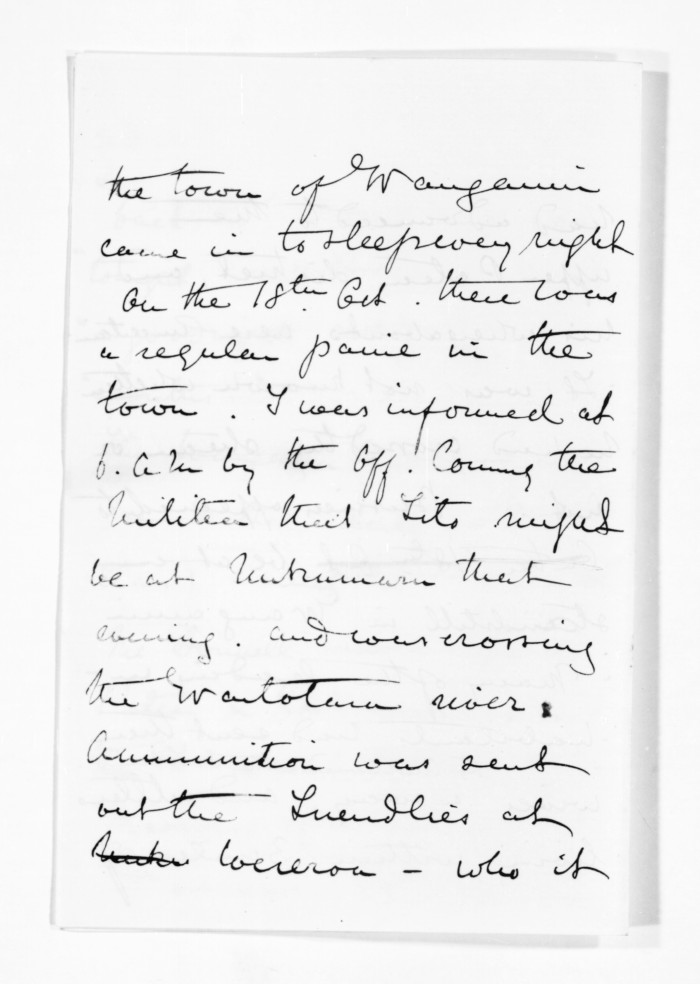 the town of Wanganui
came in to sleep every night
On the 18th. Oct. there was
a regular panic in the
town. I was informed at
6. a.m by the Off. Coming the
Militia that Tito might
be at Nukumaru that
evening. and was crossing
the Waitotara river.
Ammunition was sent
out the Friendlies at
Wereroa - who it